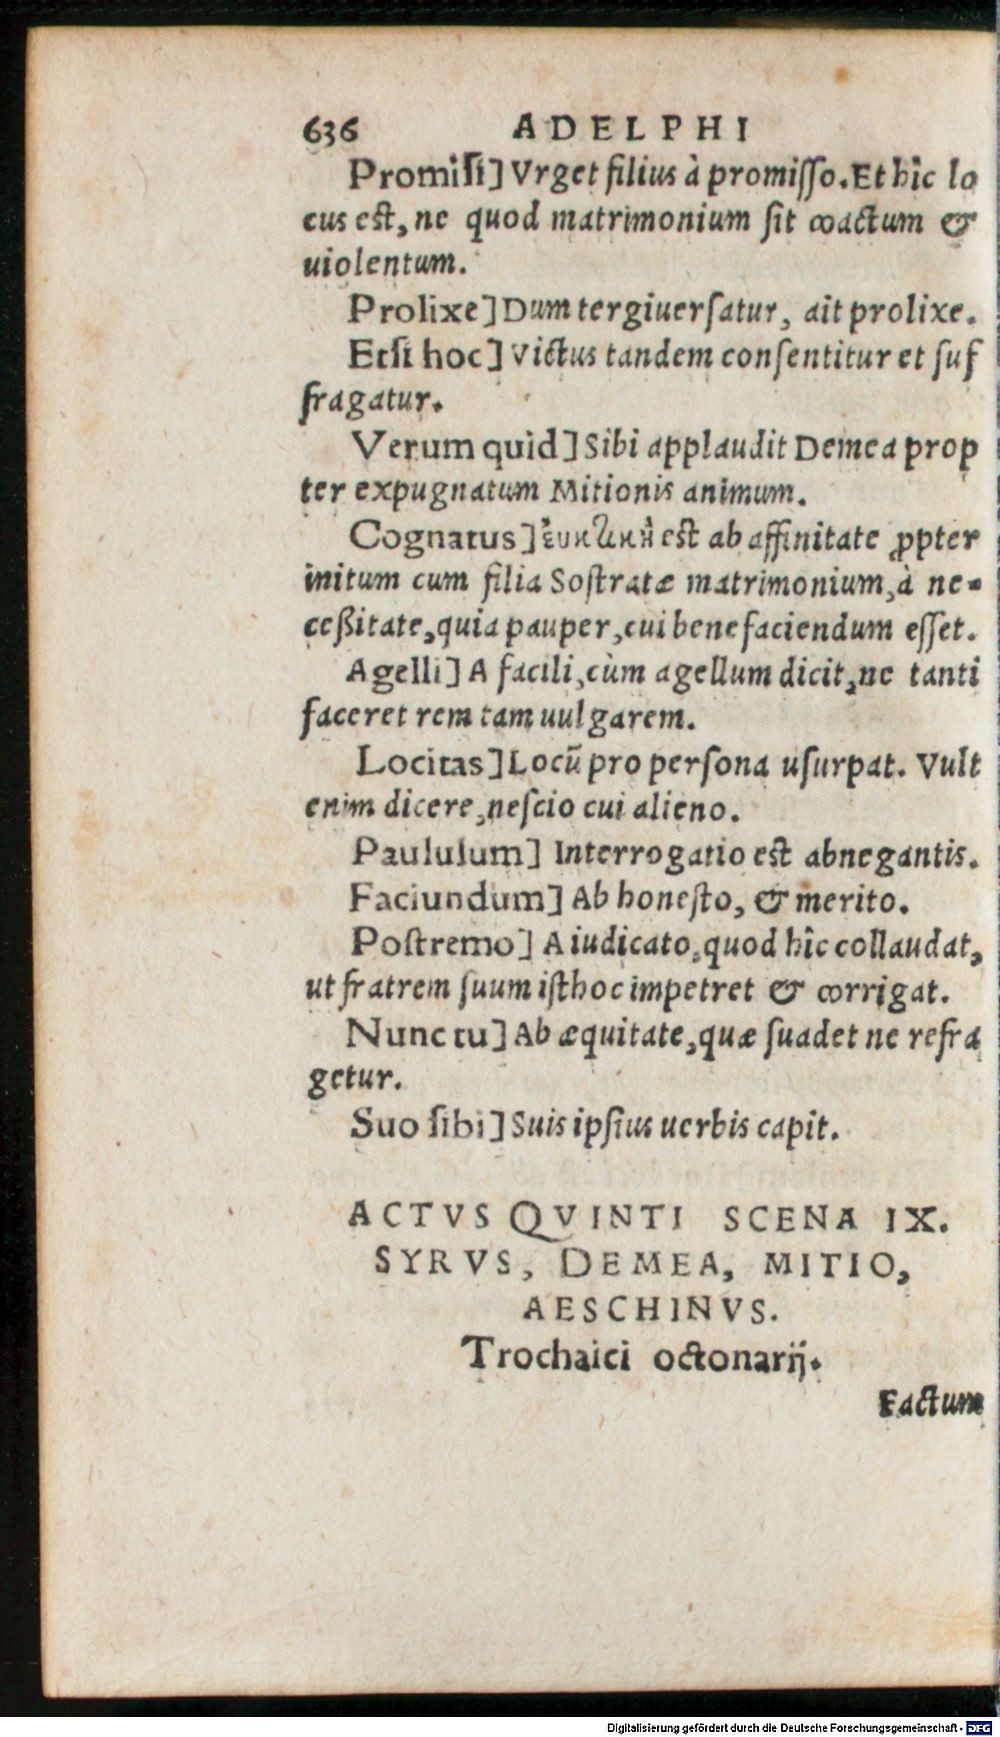 636 ADELPHI
Promisi] Vrget filius à promisso. Et hîc lo
cus est, ne quod matrimonium sit coactum &
uiolentum.
Prolixe] Dum tergiuersatur, ait prolixe.
Etsi hoc] Victus tandem consentitur et suf
fragatur.
Verum quid] Sibi applaudit Demea prop
ter expugnatum Mitionis animum.
Cognatus] est ab affinitate ꝓpter
initum cum filia Sostratæ matrimonium, à ne-
ceßitate, quia pauper, cui benefaciendum esset.
Agelli] A facili, cùm agellum dicit, ne tanti
faceret rem tam uulgarem.
Locitas] Locū pro persona usurpat. Vult
enim dicere, nescio cui alieno.
Paululum] Interrogatio est abnegantis.
Faciundum] Ab honesto, & merito.
Postremo] A iudicato, quod hîc collaudat,
ut fratrem suum isthoc impetret & corrigat.
Nunc tu] Ab æquitate, quæ suadet ne refra
getur.
Suo sibi] Suis ipsius uerbis capit.
ACTVS QVINTI SCENA IX.
SYRVS, DEMEA, MITIO,
AESCHINVS.
Trochaici octonarij.
Factum
Digitalisierung gefördert durch die Deutsche Forschungsgemeinschaft - DFG